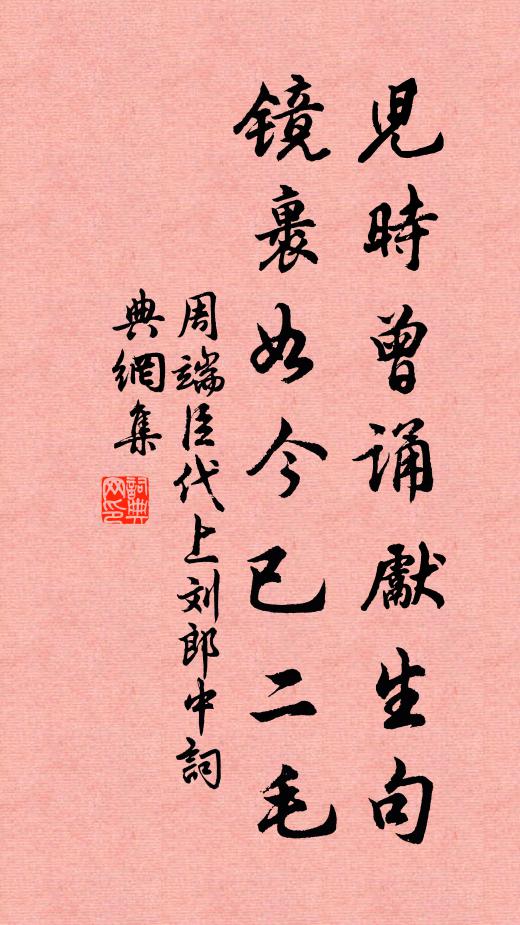 兒時曾誦獻生句
镜裹如今已二毛
周端臣代上刘郎中詞
典網集
詞典网印